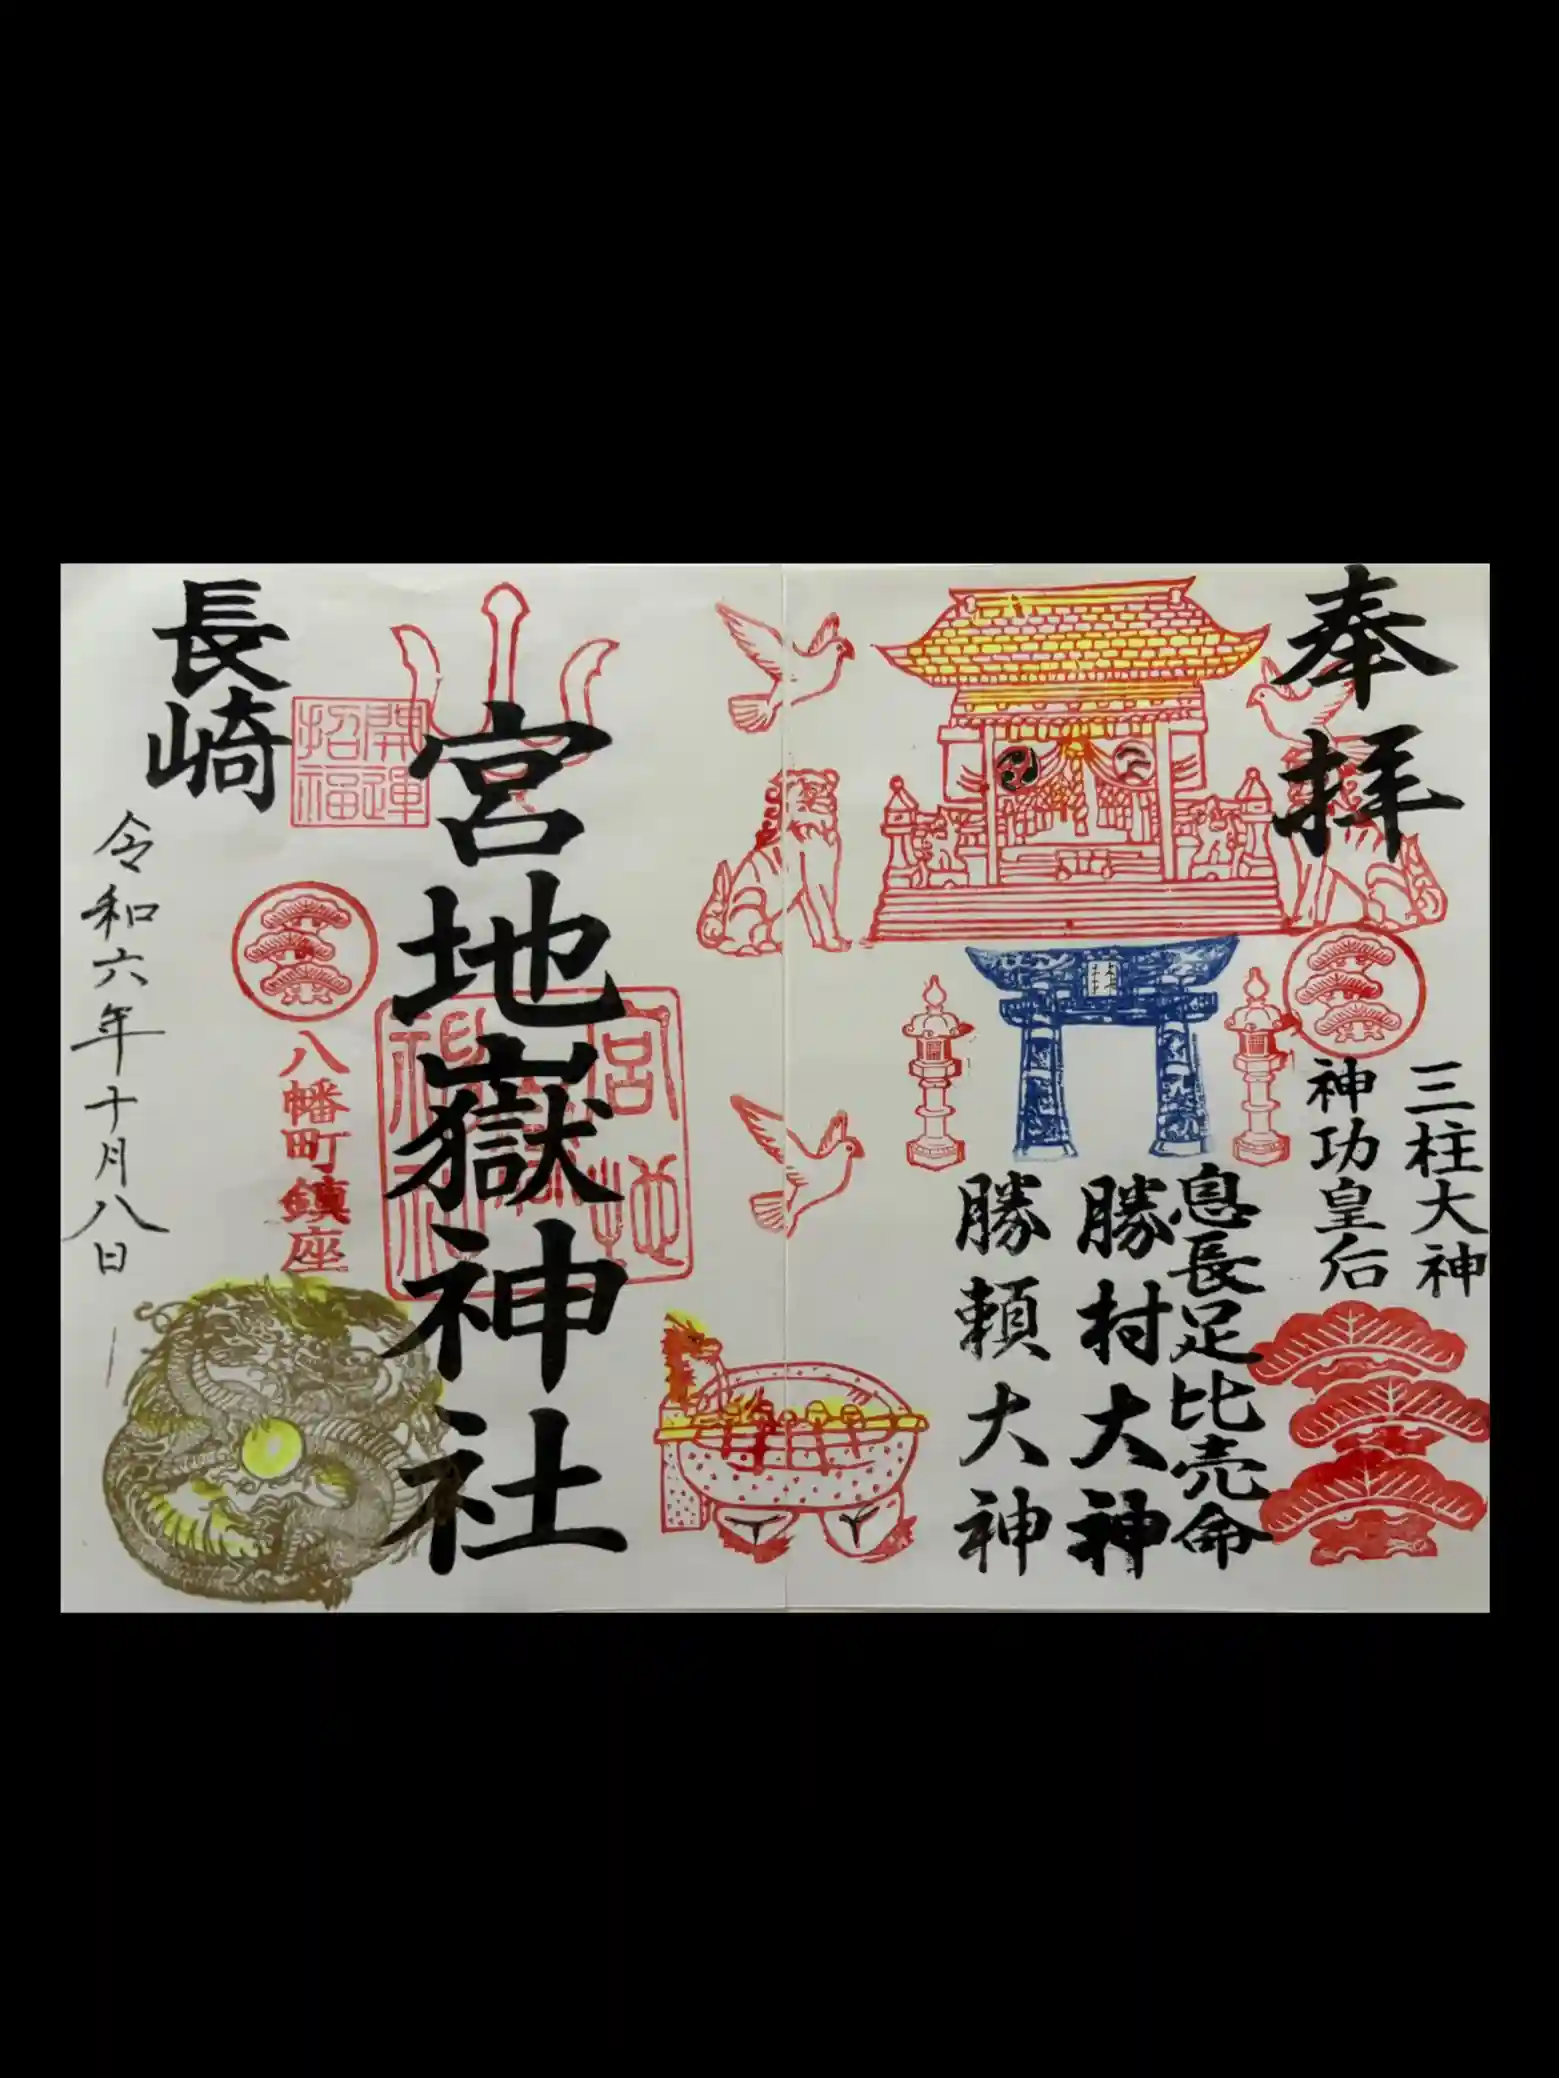 奉拝
三柱大神
神功皇后
息長足比売命
勝村大神
勝頼大神
宮地嶽神社
宮地
嶽
神社
開運
招福
長崎
八幡町鎮座
令和六年十月八日